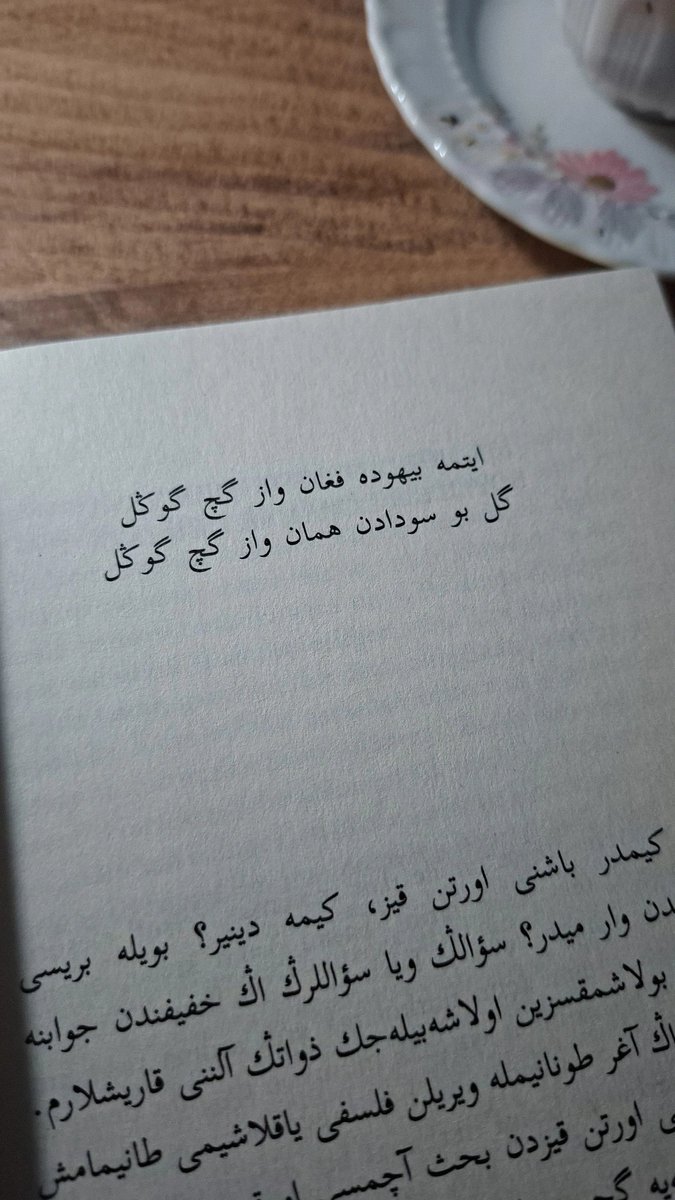 ايتمه بيهوده فغان واز گچ گوڭل
گل بو سودادن همان واز گچ گوڭل
كيمدر باشنى اورتن قيز، كيمه دينير؟ بويله بريسى
دن وار ميدر؟ سؤالڭ ويا سؤاللرڭ اڭ خفيفندن جوابنه
بولاشمقسزين اولاشه‌بيله‌جك ذواتڭ آلننى قاريشلارم.
اڭ آغر طونانيمله ويريلن فلسفى ياقلاشيمى طانيمامش
ى اورتن قيزدن بحث آچمسى